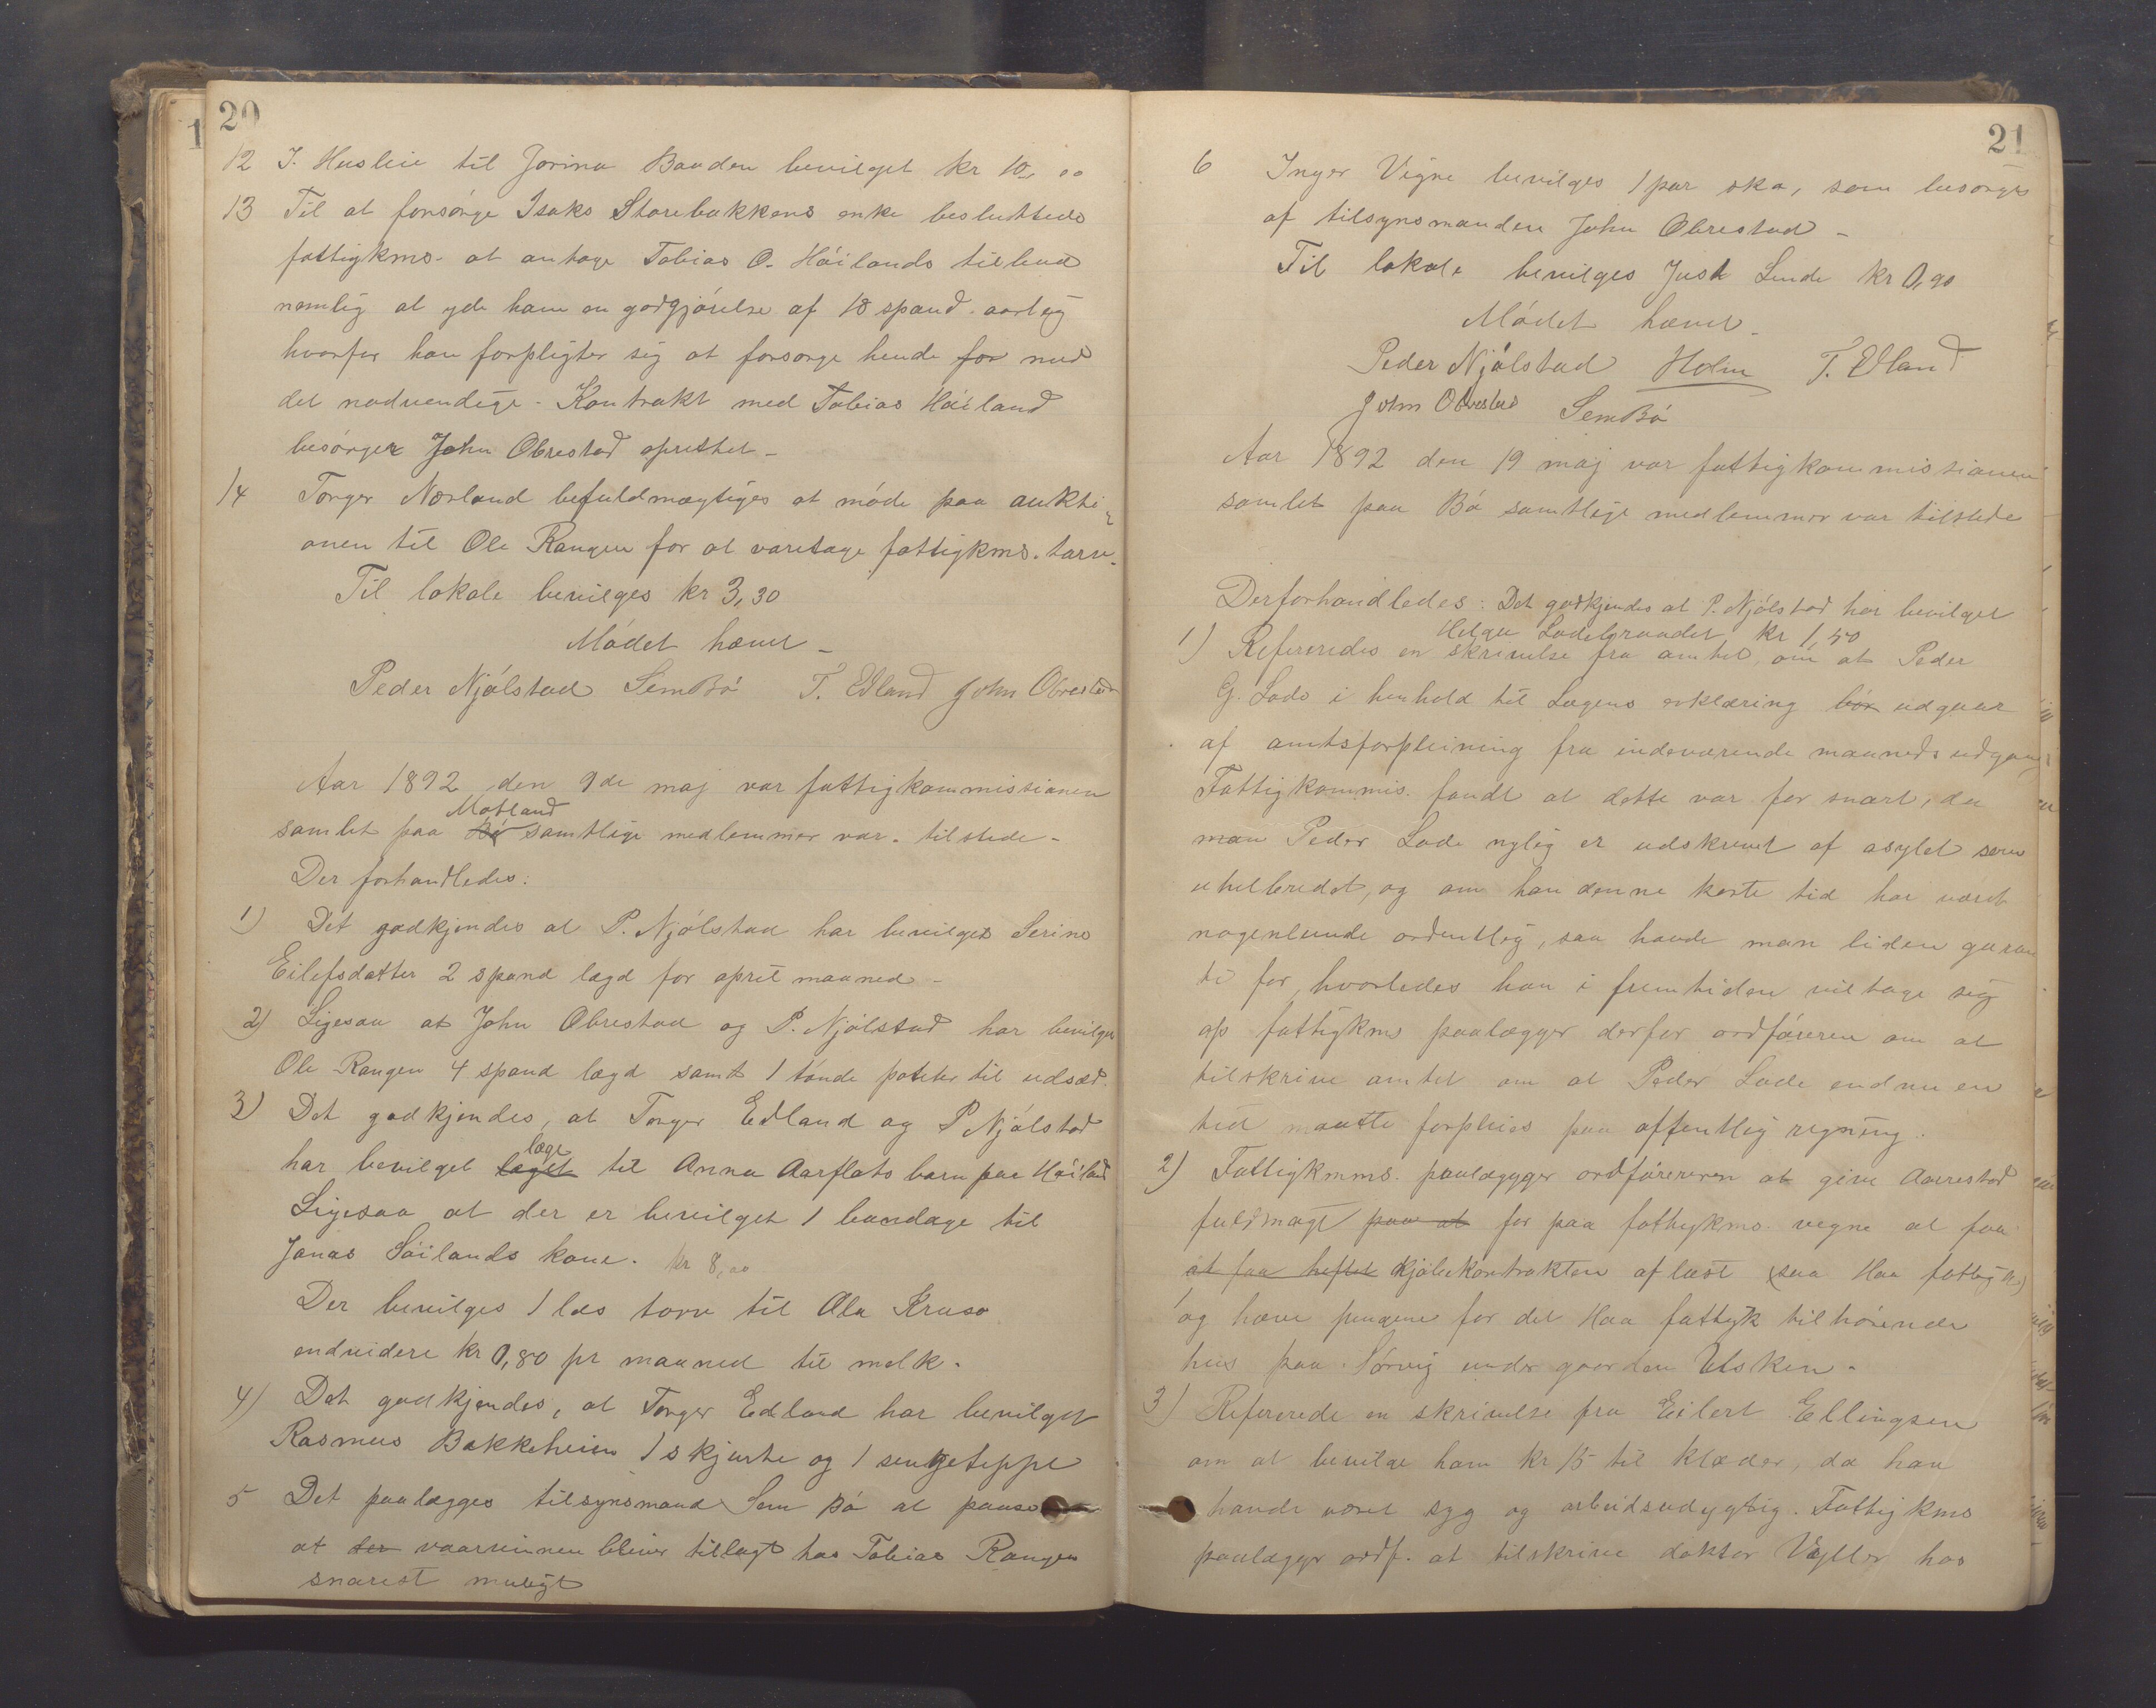 20
12 I. Husleie til Jorina Baaden bevilget kr 10,00
13 Til at forsørge Isaks Storebakkens enke besluttedes
fattigkms. at antage Tobias O. Høilands tilbud
nemlig at yde ham en godgjørelse af 18 spand. aarlig
hvorfor han forpligter sig at forsørge hende for med
det nødvendige - Kontrakt med Tobias Høiland
besørger John Obrestad oprettet -
14 Torger Nærland befuldmægtiges at møde paa aukti-
onen til Ole Rangen for at varetage fattigkms. tarv.
Til lokale bevilges kr 3,30
Mødet hævet -
Peder Njølstad Sem Bø T. Edland John Obrestad
Aar 1892 den 9de maj var fattigkommissionen
Motland
samlet paa Bø samtlige medlemmer var. tilstede -
Der forhandledes:
1) Det godkjendes at P. Njølstad har bevilget Serine
Eilefsdatter 2 spand lægd for april maaned -
2) Ligesaa at John Obrestad og P. Njølstad har bevilget
Ole Rangen 4 spand lægd samt 1 tønde poteter til udsæd.
3) Det godkjendes, at Torger Edland og P Njølstad
læge
har bevilget læget til Anna Aarflots barn paa Høiland
Ligesaa at der er bevilget 1 bandage til
Jonas Søilands kone. kr 8,00
Der bevilges 1 læs torv til Ola Kruse
endvidere kr 0,80 pr maaned til melk.
4) Det godkjendes, at Torger Edland har bevilget
Rasmus Bakkeheien 1 skjorte og 1 sengeteppe
5 Det paalægges tilsynsmand Sem Bø at paase
at der vaarvinnen bliver tillagt hos Tobias Rangen
snarest muligt
21
6 Inger Vigre bevilges 1 par sko, som besørges
af tilsynsmanden John Obrestad -
Til lokale bevilges Just Lende kr 0,90
Mødet hævet -
Peder Njølstad Holm T. Edland
John Obrestad Sem Bø
Aar 1892 den 19 maj var fattigkommissionen
samlet paa Bø samtlige medlemmer var tilstede
Derforhandledes: Det godkjendes at P. Njølstad har bevilget
Helga Lodebraadet kr 1,50
1) Refereredes en skrivelse fra amtet, om at Peder
G. Lode i henhold til Lægens erklæring bør udgaar
af amtsforpleining fra indeværende maaneds udgang
Fattigkommis. fandt at dette var for snart, da
man Peder Lode nylig er udskrevet af asylet som
uhelbredet, og om han denne korte tid har været
nogenlunde ordentlig, saa havde man liden garan
ti for, hvorledes han i fremtiden vil tage sig
op fattigkms paalægger derfor ordføreren om at
tilskrive amtet om at Peder Lode endnu en
tid maatte forpleies paa offentlig regning.
2) Fattigkmms. paalægger ordføreren at give Aarrestad
fuldmagt paa at for paa fattigkms. vegne at faa
at faa heftet kjøbekontrakten aflæst (saa Haa fattigk)
og hæve pengene for det Haa fattigk tilhørende
hus paa Sørvig under gaarden Udsken.
3) Refererede en skrivelse fra Eilert Ellingsen
om at bevilge ham kr 15 til klæder, da han
havde været syg og arbeidsudygtig. Fattigkms
paalægger ordf. at tilskrive doktor Vogller hos